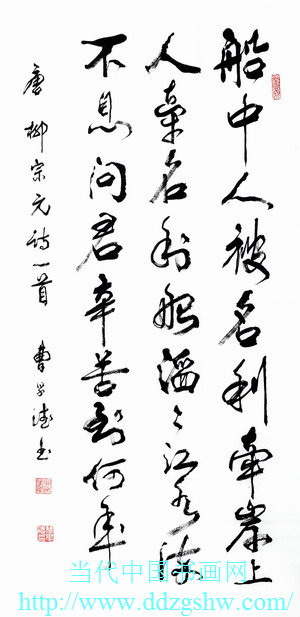 船中人被名利牽岸上
人牽名利船滔〻江水流
不息问君辛苦到何年
唐柳宗元诗一首 曹
当代中国书画网
http://www.ddzgshw.com/